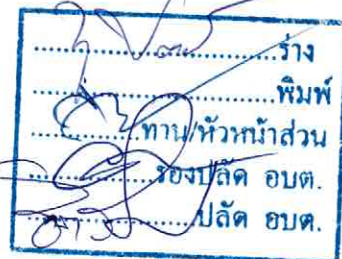 ....................ร่าง
....................พิมพ์
....................ทาน/หัวหน้าส่วน
....................รองปลัด อบต.
....................ปลัด อบต.